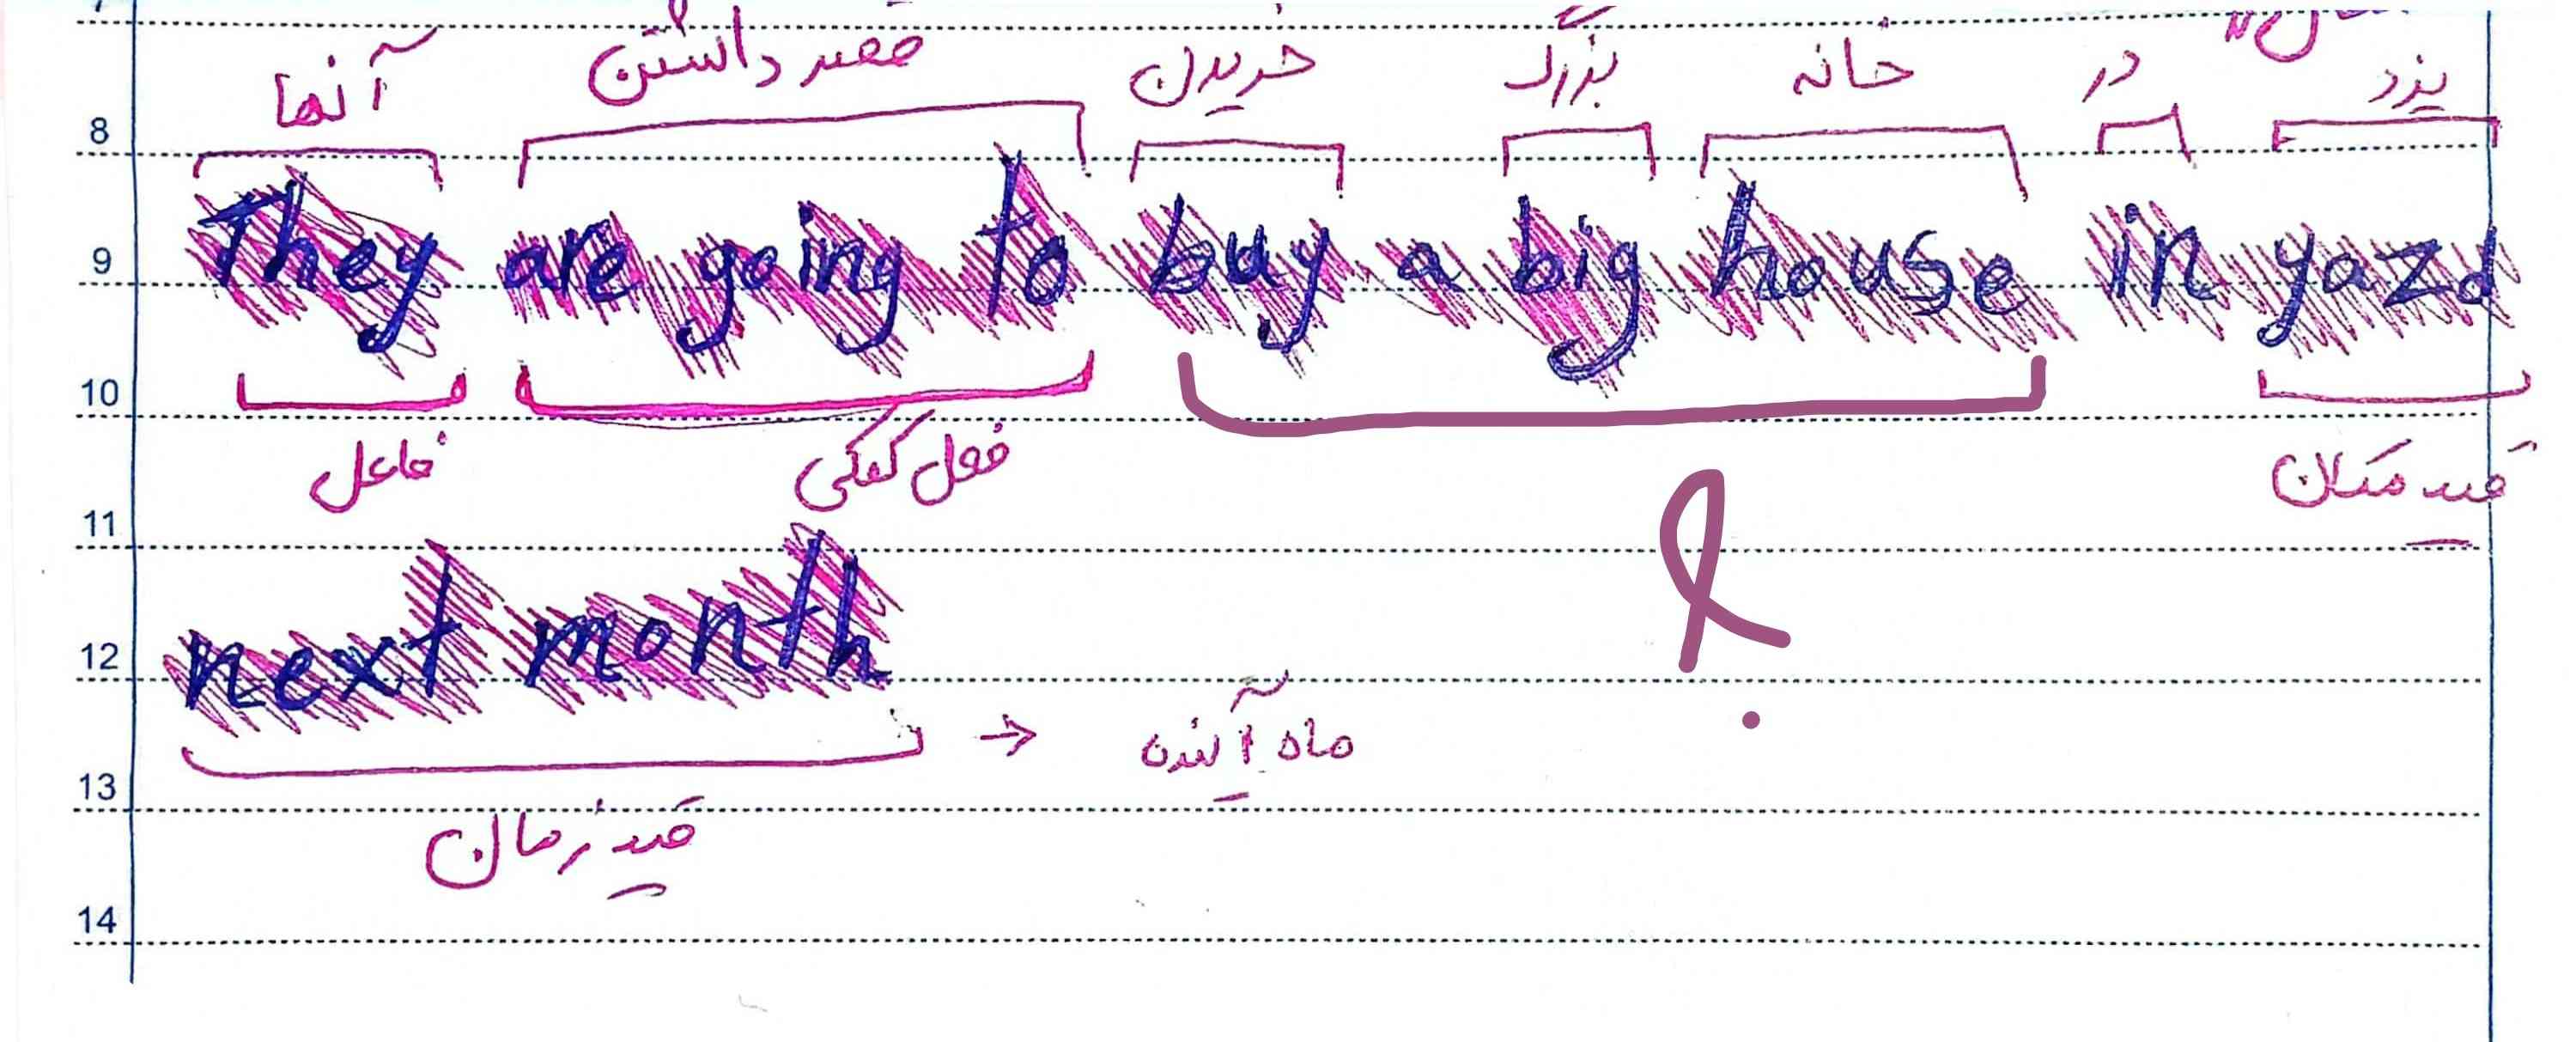 آنها قصد داشتن خریدن بزرگ خانه در یزد
8
They are going to buy a big house in yazd
9
10
فاعل فعل کمکی ؟ قید مکان
11
next month
12
→ ماه آینده
13
قید زمان
14